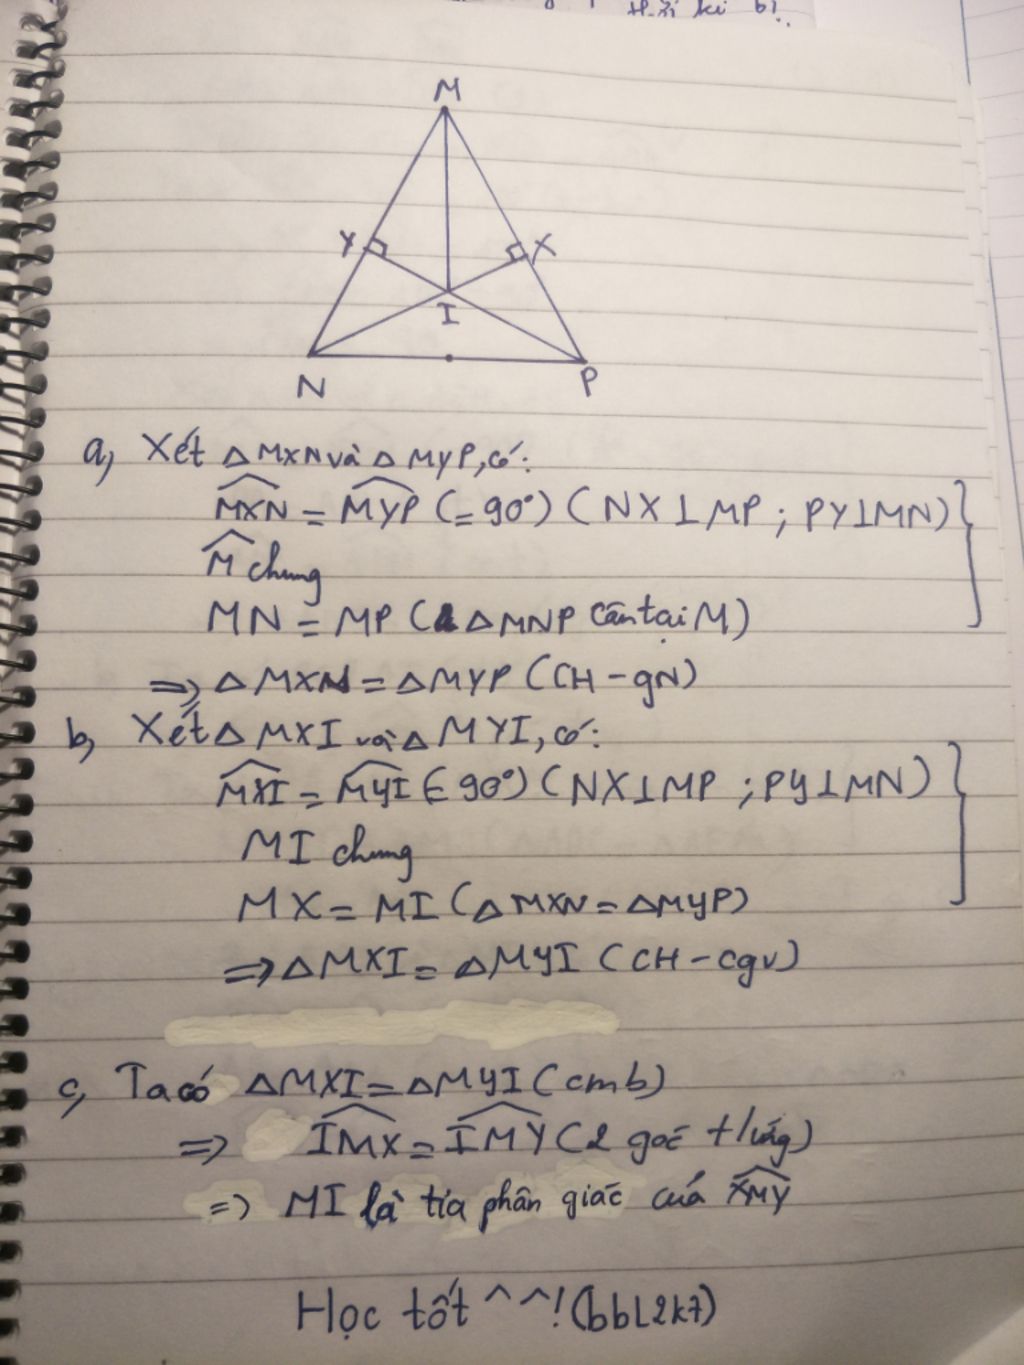 M
Y
X
I
N
P
a, Xét △MXN và △MYP, có:
MXN = MYP (=90°) (NX⊥MP; PY⊥MN)
M chung
MN = MP (△MNP cân tại M)
=> △MXN = △MYP (CH-gN)
b, Xét △MXI và △MYI, có:
MXI = MYI (=90°) (NX⊥MP; PY⊥MN)
MI chung
MX = MI (△MXN = △MYP)
=> △MXI = △MYI (CH-cgv)
c, Ta có △MXI = △MYI (cmb)
=> IMX = IMY (2 góc t/ứng)
=> MI là tia phân giác của XMY
Học tốt ^^! (bbl2k7)